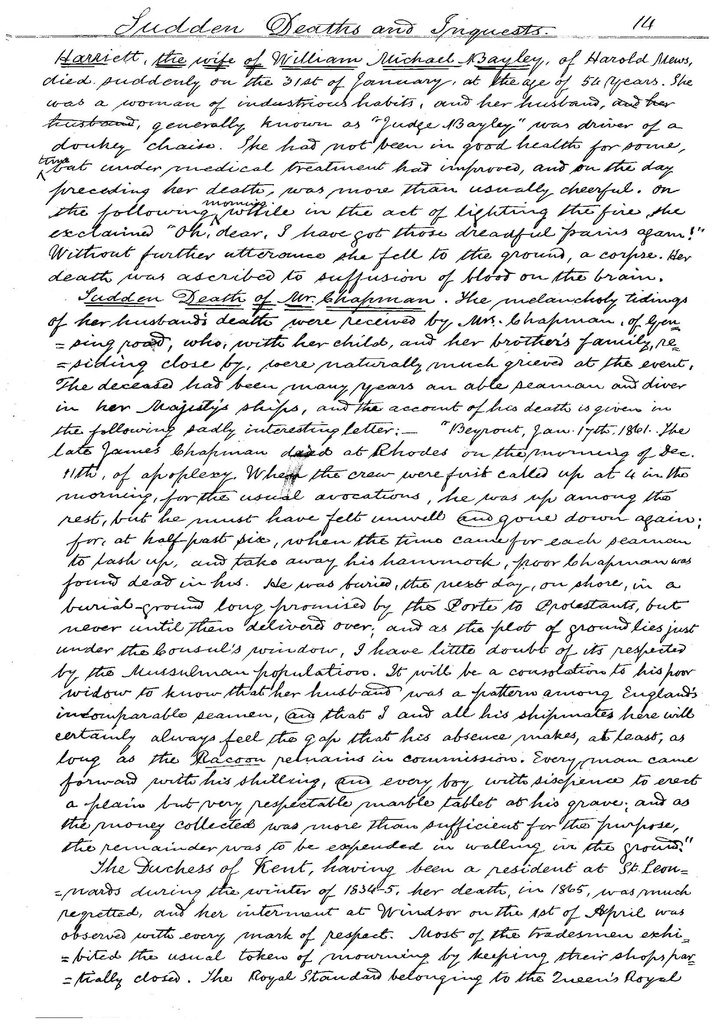 Sudden Deaths and Inquests. 14
Harriett, the wife of William Michael Bayley, of Harold Mews,
died suddenly on the 31st of January, at the age of 54 years. She
was a woman of industrious habits, and her husband, and her
husband, generally known as "Judge Bayley" was driver of a
donkey chaise. She had not been in good health for some,
time but under medical treatment had improved, and on the day
preceding her death, was more than usually cheerful. On
the following morning while in the act of lighting the fire, she
exclaimed "Oh, dear, I have got those dreadful pains again!"
Without further utterance she fell to the ground, a corpse. Her
death was ascribed to suffusion of blood on the brain.
Sudden Death of Mr. Chapman. The melancholy tidings
of her husband's death were received by Mrs. Chapman, of Gen-
=sing road, who, with her child, and her brother's family, re-
=siding close by, were naturally much grieved at the event.
The deceased had been many years an able seaman and diver
in her Majesty's ships, and the account of his death is given in
the following sadly interesting letter:— "Beyrout, Jan. 17th. 1861. The
late James Chapman died at Rhodes on the morning of Dec.
11th, of apoplexy. When the crew were first called up at 4 in the
morning, for the usual avocations, he was up among the
rest, but he must have felt unwell and gone down again;
for, at half past six, when the time came for each seaman
to lash up, and take away his hammock, poor Chapman was
found dead in his. He was buried, the next day, on shore, in a
burial-ground long promised by the Porte to Protestants, but
never until then delivered over; and as the plot of ground lies just
under the Consul's window, I have little doubt of its respected
by the Mussulman population. It will be a consolation to his poor
widow to know that her husband was a pattern among England's
indomparable seamen, and that I and all his shipmates here will
certainly always feel the gap that his absence makes, at least, as
long as the Racoon remains in commission. Every man came
forward with his shilling, and every boy with sixpence to erect
a plain but very respectable marble tablet at his grave; and as
the money collected was more than sufficient for the purpose,
the remainder was to be expended in walling in the ground."
The Duchess of Kent, having been a resident at St. Leon-
=nards during the winter of 1834-5, her death, in 1865, was much
regretted, and her interment at Windsor on the 1st of April was
observed with every mark of respect. Most of the tradesmen exhi-
=bited the usual token of mourning by keeping their shops par-
=tially closed. The Royal Standard belonging to the Queen's Royal